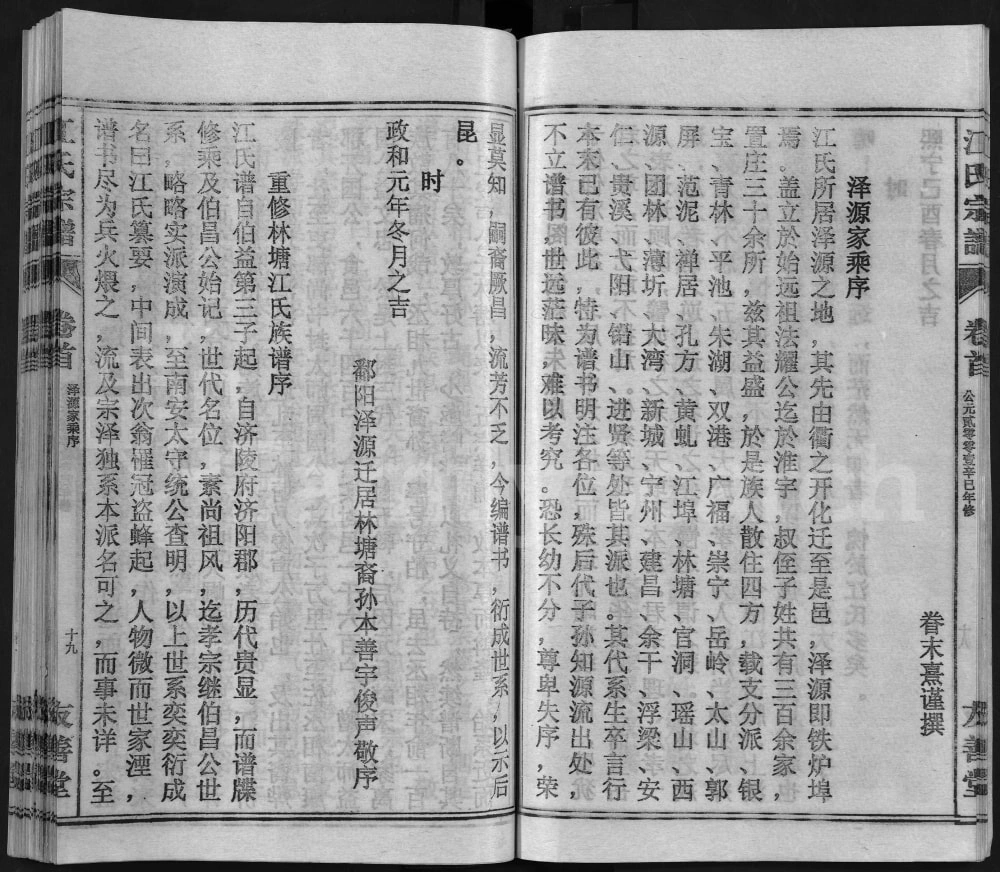 江氏宗譜
卷首
公元贰零零壹辛巳年修
友善堂
眷末熹谨撰
泽源家乘序
江氏所居泽源之地,其先由衢之开化迁至是邑,泽源即铁炉埠
焉。盖立於始远祖法耀公迄於淮宇,叔侄子姓共有三百余家,
置庄三十余所,兹其益盛,於是族人散住四方,载支分派、银
宝、青林、平池、朱湖、双港、广福、崇宁、岳岭、太山、郭
屏、范泥、禅居、孔方、黄虬、江埠、林塘、官洞、瑶山、西
源、团林、薄圻、大湾、新城、宁州、建昌、余干、浮梁、安
仁、贵溪、弋阳、铅山、进贤等处皆其派也。其代系生卒言行
本末已有彼此,特为谱书明注各位,殊后代子孙知源流出处,
不立谱书,世远茫昧,难以考究。恐长幼不分,尊卑失序,荣
显莫知,嗣裔厥昌,流芳不乏,今编谱书,衍成世系,以示后
昆。
时
政和元年冬月之吉
鄱阳泽源迁居林塘裔孙本善宇俊声敬序
重修林塘江氏族谱序
江氏谱自伯益第三子起,自济陵府济阳郡,历代贵显,而谱牒
修乘及伯昌公始记,世代名位,素尚祖风,迄孝宗继伯昌公世
系,略略实派演成,至南安太守统公查明,以上世系奕奕衍成
名曰江氏纂要,中间表出次翁罹冠盗蜂起,人物微而世家湮,
谱书尽为兵火煨之,流及宗泽独系本派名可之,而事未详。至
江氏宗譜
卷首
泽源家乘序
十九
友善堂